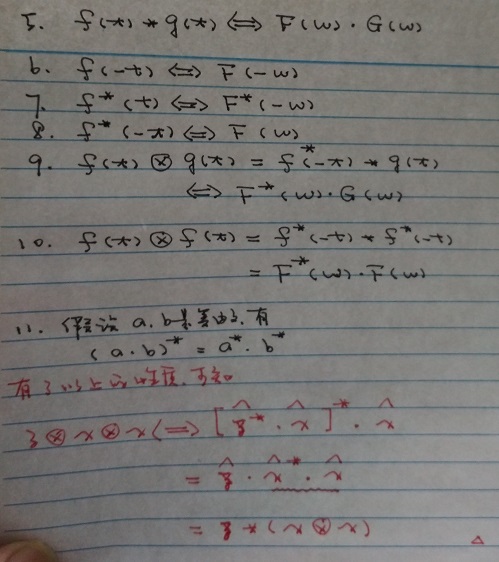 5. f(t) * g(t) ⟺ F(w)·G(w)
6. f(-t) ⟺ F(-w)
7. f*(t) ⟺ F*(-w)
8. f*(-t) ⟺ F(w)
9. f(t) ⊗ g(t) = f*(-t) * g(t)
⟺ F*(w)·G(w)
10. f(t) ⊗ f(t) = f*(-t) * f*(-t)
= F*(w)·F(w)
11. 假设 a.b是复数,有
(a·b)* = a*·b*
有了以上的性质,可知
z⊗x⊗x ⟺ [ẑ*·x̂]*·x̂
= ẑ·x̂*·x̂
= z*(x⊗x)